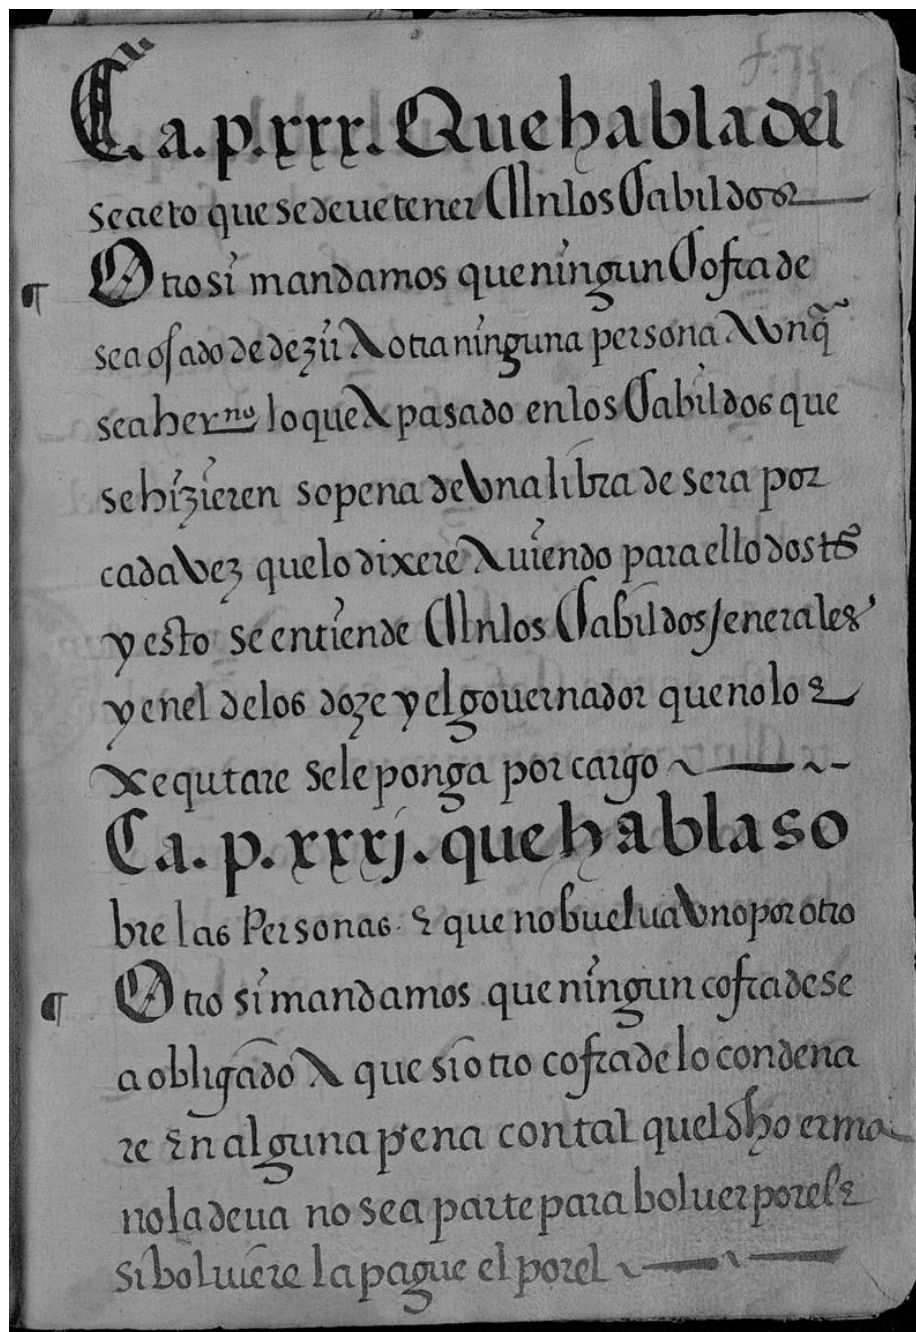 Ca.p.xxx. Que habla del
secreto que se deue tener En los Cabildos
¶ Otro si mandamos que ningun Cofrade
sea osado de dezir A otra ninguna persona Avnq̃
sea herno lo que A pasado en los Cabildos que
se hizieren so pena de vna libra de sera por
cada vez que lo dixere Auiendo para ello dos tos
y esto se entiende En los Cabildos Jenerales
y en el de los doze y el gouernador que no lo e
xequtare se le ponga por cargo
Ca.p.xxxj. que habla so
bre las Personas. E que no buelua vno por otro
¶ Otro si mandamos que ningun cofrade se
a obligado A que si otro cofrade lo condena
re En alguna pena con tal quel dho erma
no la deua no sea parte para boluer por el E
si boluiere la pague el por el